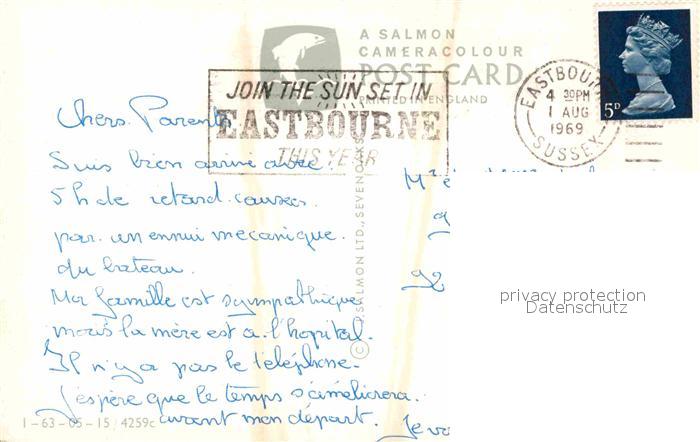 A SALMON
CAMERACOLOUR
POST CARD
PRINTED IN ENGLAND
JOIN THE SUN SET IN
EASTBOURNE
THIS YEAR
EASTBOURNE
4 30PM
1 AUG
1969
SUSSEX
5D
Chers Parents
Suis bien arrivé avec
5h de retard causés
par un ennui mecanique
du bateau.
Ma famille est sympathique
mais la mère est a l'hopital.
Il n'y a pas le téléphone.
J'espère que le temps s'améliorera
avant mon départ. Je
92
© J. SALMON LTD., SEVENOAKS
privacy protection
Datenschutz
1-63-05-15/4259c